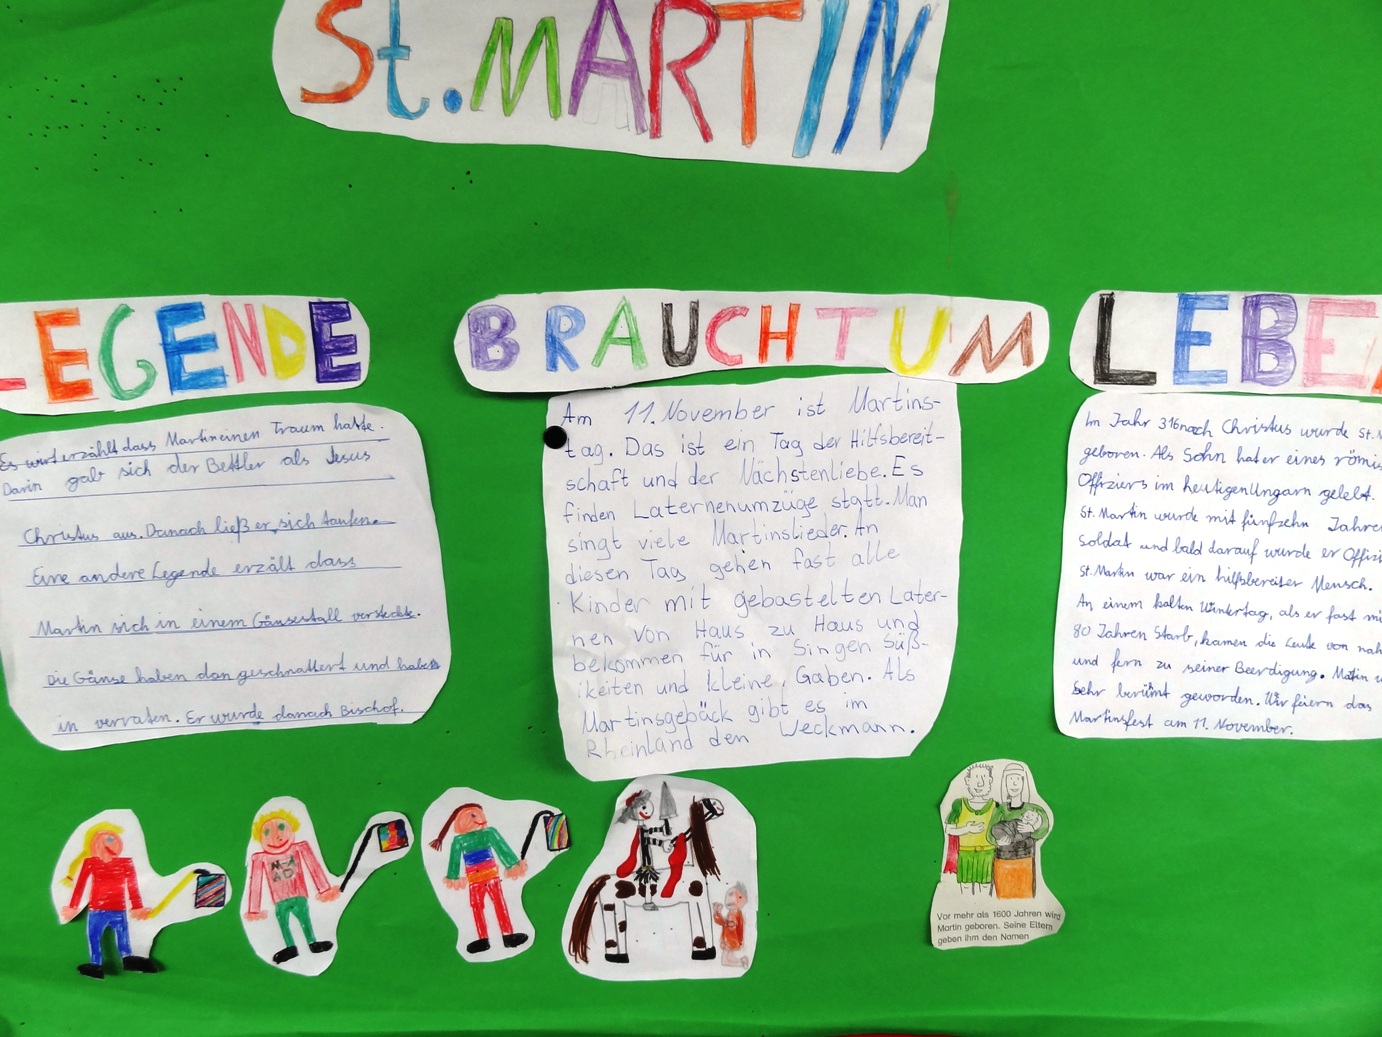 St. MARTIN
LEGENDE
Es wird erzählt dass Martin einen Traum hatte.
Darin gab sich der Bettler als Jesus
Christus aus. Danach ließ er sich taufen.
Eine andere Legende erzält dass
Martin sich in einem Gänsestall versteckte.
Die Gänse haben dan geschnattert und haben
in verraten. Er wurde danach Bischof.
BRAUCHTUM
Am 11. November ist Martins-
tag. Das ist ein Tag der Hilfsbereit-
schaft und der Nächstenliebe. Es
finden Laternenumzüge statt. Man
singt viele Martinslieder. An
diesen Tag gehen fast alle
Kinder mit gebastelten Later-
nen von Haus zu Haus und
bekommen für in Singen Süß-
ikeiten und kleine Gaben. Als
Martinsgebäck gibt es im
Rheinland den Weckmann.
LEBE
Im Jahr 316 nach Christus wurde St.
geboren. Als Sohn hat er eines
Offiziers im heutigen Ungarn gelebt.
St. Martin wurde mit fünfzehn
Soldat und bald darauf wurde er
St. Martin war ein hilfsbereiter Mensch.
An einem kalten Wintertag, als er fast
80 Jahren Starb, kamen die Leute von
und fern zu seiner Beerdigung.
Sehr berümt geworden. Wir feiern das
Martinsfest am 11. November.
Vor mehr als 1600 Jahren wird
Martin geboren. Seine Eltern
geben ihm den Namen